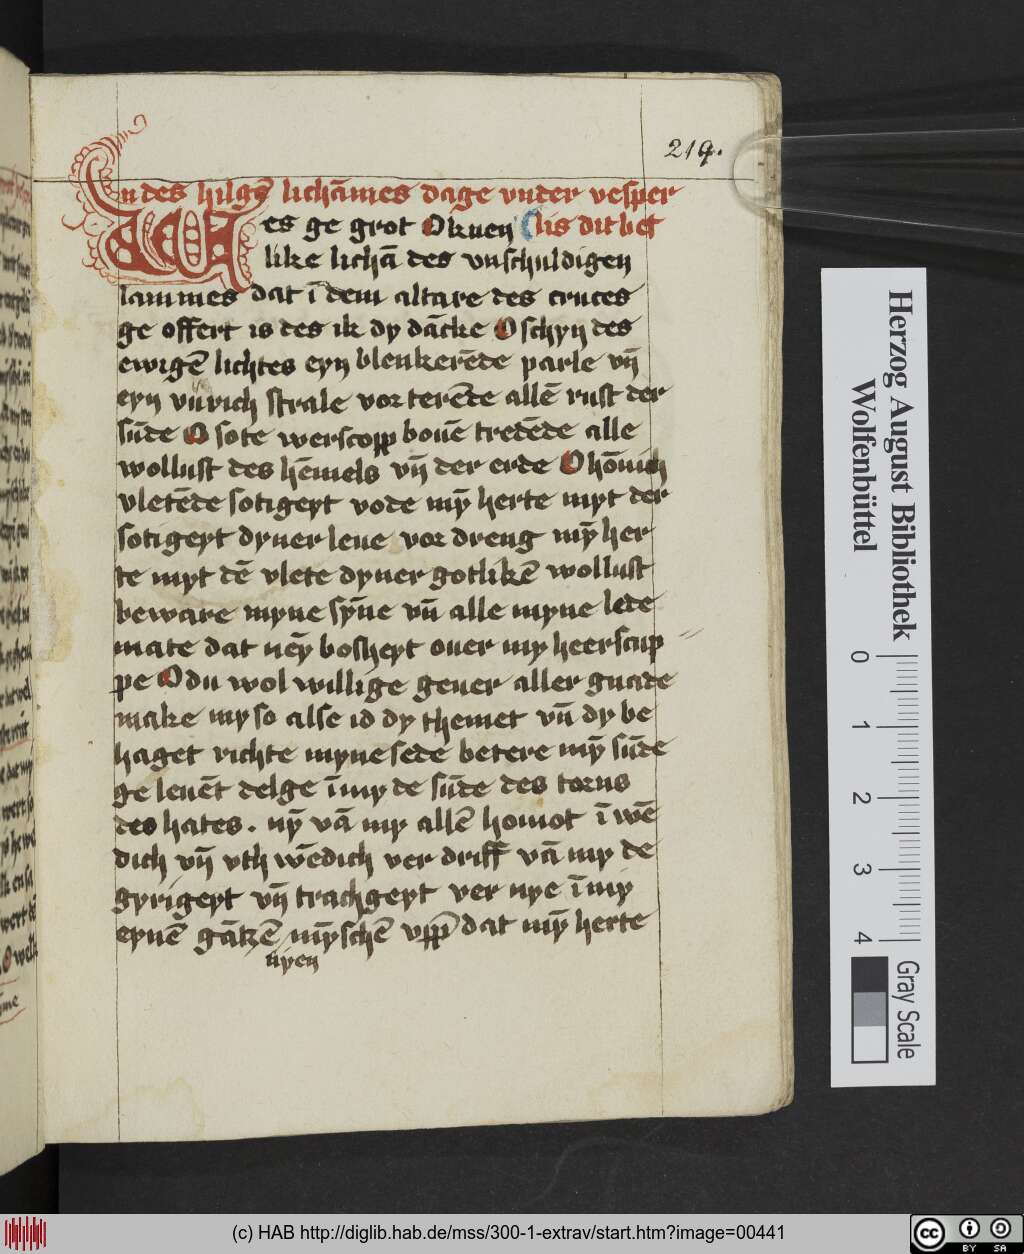 219.
In des hilgē lichāmes dage vnder vesper
Wes ge grot O kuen lis dit bet
like lichā des vnschuldigen
lammes dat ī dem altare des cruces
ge offert is des ik dy dācke O schyn des
ewigē lichtes eyn blenkerēde parle vn̄
eyn vurich strale vor terēde allē rust der
sūde O sote werscopp bouē tredēde alle
wollust des hēmels vn̄ der erde O hōnich
vletēde sotigeyt vode mȳ herte myt der
sotigeyt dyner leue vor dreng mȳ her
te myt dē vlete dyner gotlikē wollust
beware myne sȳne vn̄ alle myne lede
mate dat nēy bosheyt ouer my heerscup
pe O du wol willige geuer aller gnade
make my so alse id dy themet vn̄ dy be
haget richte myne sede betere mȳ sūde
ge leuēt delge ī my de sūde des torns
des hates. nȳ vā my allē homot ī wē
dich vn̄ vth wēdich ver driff vā my de
gyrigeyt vn̄ trachgeyt ver nye ī my
eynē gātzē mȳschē vpp dat mȳ herte
nyen
Herzog August Bibliothek
Wolfenbüttel
0 1 2 3 4
Gray Scale
(c) HAB http://diglib.hab.de/mss/300-1-extrav/start.htm?image=00441
cc BY SA